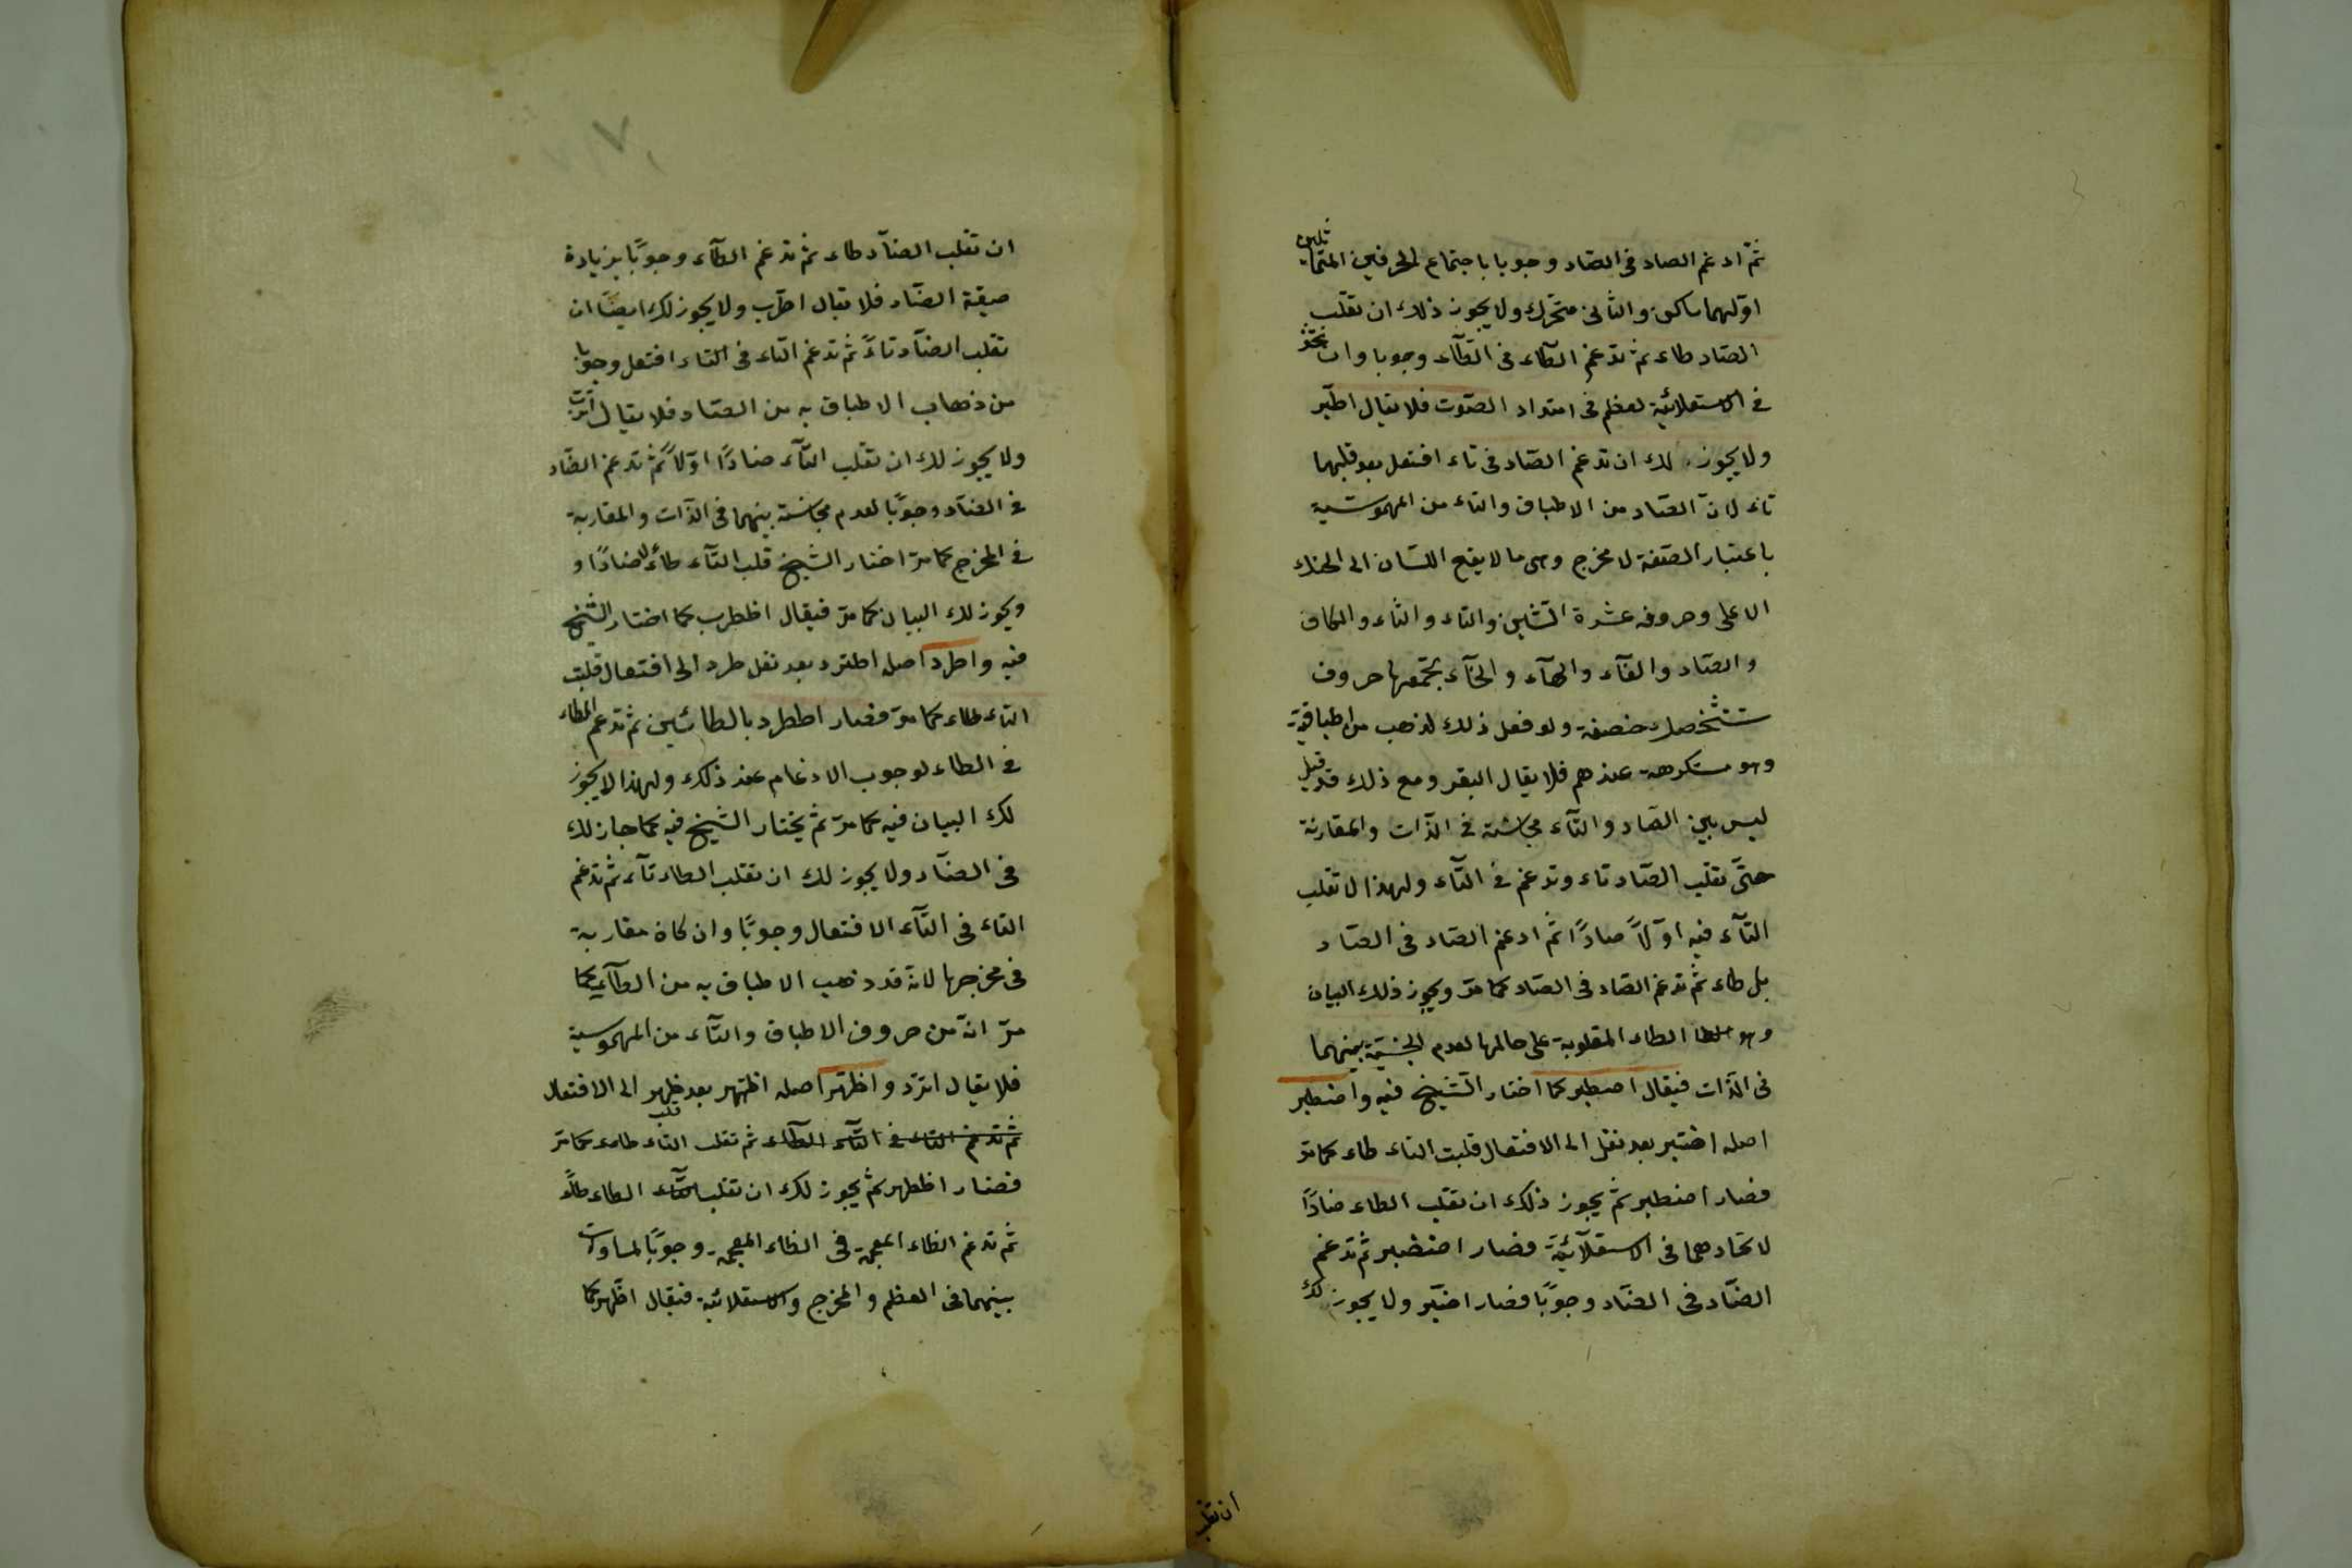 ثمّ ادغم الصاد فى الصّاد وجوبا باجتماع الحرفين المتماثلين
اوّلهما ساكن والثانى متحرّك ولا يجوز ذلك ان تقلب
الصّاد طاء ثم تدغم الطّاء فى الطّآء وجوبا وان
فى الاستعلائية لعظم فى امتداد الصّوت فلا يقال اطّبر
ولا يجوز لك ان تدغم الصّاد فى تاء افتعل بعد قلبها
تاء لانّ الصّاد من الاطباق والتاء من المهموسيّة
باعتبار الصّفة لا مخرج وهى ما لا يقع اللّسان الى الحنك
الاعلى وحروفه عشرة الشّين والتاء والثاء والكاف
والصّاد والفآء والهآء والخآء يجمعها حروف
ستشحثك خصفة ولو فعل ذلك لذهب من اطباقيّة
وهو مستكرهة عندهم فلا يقال اتبر ومع ذلك قد قيل
ليس بين الصّاد والتآء مجانسة فى الذّات والمقارنة
حتّى تقلب الصّاد تاء وتدغم فى التّآء ولهذا لا تقلب
التّآء فيه اوّلاً صادًا ثم ادغم الصّاد فى الصّاد
بل طاء ثم تدغم الصّاد فى الصّاد كما مرّ ويجوز ذلك البيان
وهو الطاء المقلوبة على حالها لعدم الجنسيّة بينهما
فى الذّات فيقال اصطبر كما اختار الشّيخ فيه واضطبر
اصله اضتبر بعد نقل الى الافتعال قلبت التاء طاء كما مرّ
فصار اضطبر ثم يجوز ذلك ان تقلب الطاء ضادًا
لاتحادهما فى الاستعلآئيّة فصار اضضبر ثم تدغم
الضّاد فى الضّاد وجوبًا فصار اضّبر ولا يجوز لك
ان تقلب
ان تقلب الضّآد طاء ثم تدغم الطّآء وجوبًا بزيادة
صيغة الضّاد فلا يقال اطّرب ولا يجوز لك ايضًا ان
تقلب الضّآد تاءً ثم تدغم التّاء فى التاء افتعل وجوبا
من ذهاب الاطباق به من الضّاد فلا يقال اتّرب
ولا يجوز لك ان تقلب التّآء ضادًا اوّلاً ثم تدغم الضّاد
فى الضّآد وجوبًا لعدم مجانسة بينهما فى الذّات والمقاربة
فى المخرج كما مرّ اختار الشّيخ قلب التّآء طاءً لا ضادًا و
ويجوز لك البيان كما مرّ فيقال اضطرب كما اختار الشّيخ
فيه واطرد اصله اطترد بعد نقل طرد الى افتعال قلبت
التاء طاء كما مرّ فصار اططرد بالطائين ثم تدغم الطاء
فى الطاء لوجوب الادغام عند ذلك ولهذا لا يجوز
لك البيان فيه كما مرّ ثم يختار الشّيخ فيه كما جاز لك
فى الضّآد ولا يجوز لك ان تقلب الطاء تآء ثم تدغم
التاء فى التّآء الافتعال وجوبًا وان كان مقاربة
فى مخرجها لانّه قد ذهب الاطباق به من الطآء كما
مرّ انّه من حروف الاطباق والتآء من المهموسية
فلا يقال اترّد واظهر اصله اظتهر بعد ظهر الى الافتعال
ثم تدغم التاء فى التّآء الطّآء ثم تقلب التاء طاء كما مرّ
فصار اظطهر ثم يجوز لك ان تقلب الطاء ظاءً
ثم تدغم الظاء المعجمة فى الظاء المعجمة وجوبًا لمساوات
بينهما فى العظم والمخرج والاستعلائيّة فيقال اظّهر كما